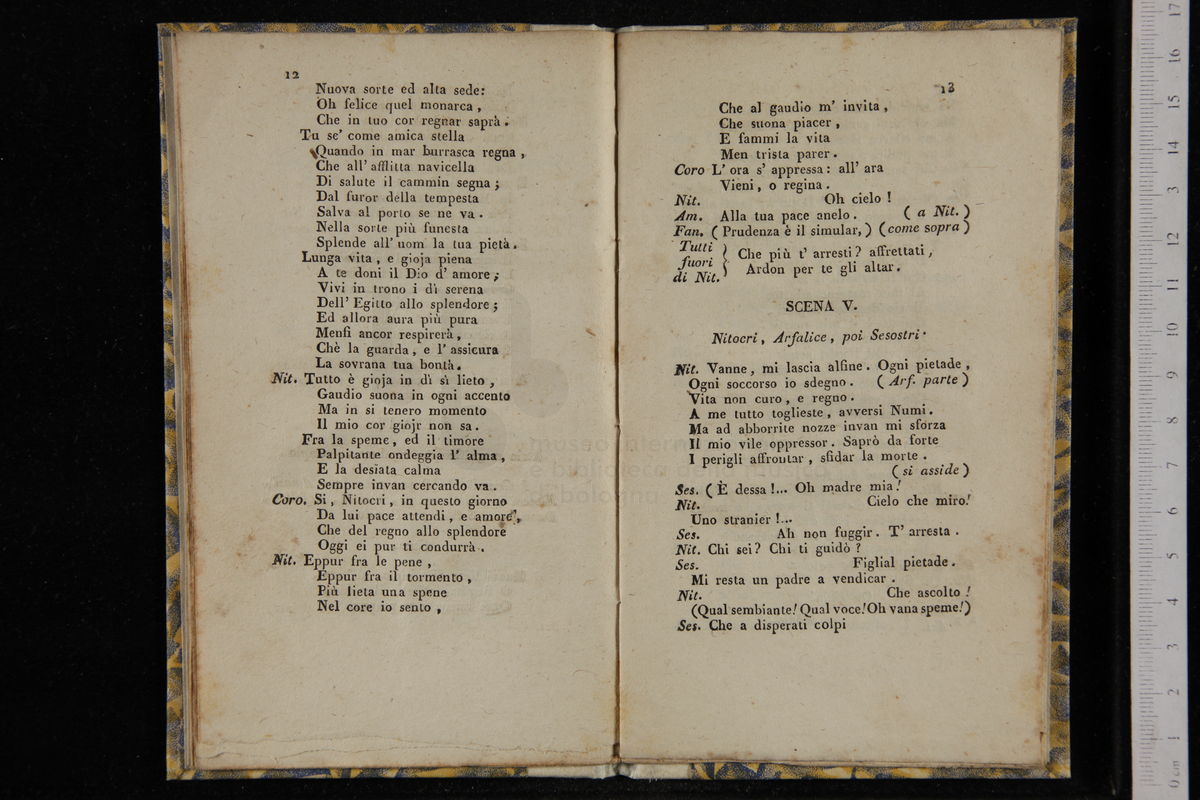 12
Nuova sorte ed alta sede:
Oh felice quel monarca,
Che in tuo cor regnar saprà.
Tu se' come amica stella
Quando in mar burrasca regna,
Che all' afflitta navicella
Di salute il cammin segna;
Dal furor della tempesta
Salva al porto se ne va.
Nella sorte più funesta
Splende all' uom la tua pietà.
Lunga vita, e gioja piena
A te doni il Dio d' amore;
Vivi in trono i dì serena
Dell' Egitto allo splendore;
Ed allora aura più pura
Menfi ancor respirerà,
Chè la guarda, e l' assicura
La sovrana tua bontà.
Nit. Tutto è gioja in dì sì lieto,
Gaudio suona in ogni accento
Ma in si tenero momento
Il mio cor giojr non sa.
Fra la speme, ed il timore
Palpitante ondeggia l' alma,
E la desiata calma
Sempre invan cercando va.
Coro. Si, Nitocri, in questo giorno
Da lui pace attendi, e amore,
Che del regno allo splendore
Oggi ei pur ti condurrà.
Nit. Eppur fra le pene,
Eppur fra il tormento,
Più lieta una spene
Nel core io sento,
13
Che al gaudio m' invita,
Che suona piacer,
E fammi la vita
Men trista parer.
Coro L' ora s' appressa: all' ara
Vieni, o regina.
Nit. Oh cielo!
Am. Alla tua pace anelo. (a Nit.)
Fan. (Prudenza è il simular,) (come sopra)
Tutti fuori di Nit. } Che più t' arresti? affrettati,
Ardon per te gli altar.
SCENA V.
Nitocri, Arfalice, poi Sesostri.
Nit. Vanne, mi lascia alfine. Ogni pietade,
Ogni soccorso io sdegno. (Arf. parte)
Vita non curo, e regno.
A me tutto toglieste, avversi Numi.
Ma ad abborrite nozze invan mi sforza
Il mio vile oppressor. Saprò da forte
I perigli affrontar, sfidar la morte.
(si asside)
Ses. (È dessa!... Oh madre mia!
Nit. Cielo che miro!
Uno stranier!...
Ses. Ah non fuggir. T' arresta.
Nit. Chi sei? Chi ti guidò?
Ses. Figlial pietade.
Mi resta un padre a vendicar.
Nit. Che ascolto!
(Qual sembiante! Qual voce! Oh vana speme!)
Ses. Che a disperati colpi